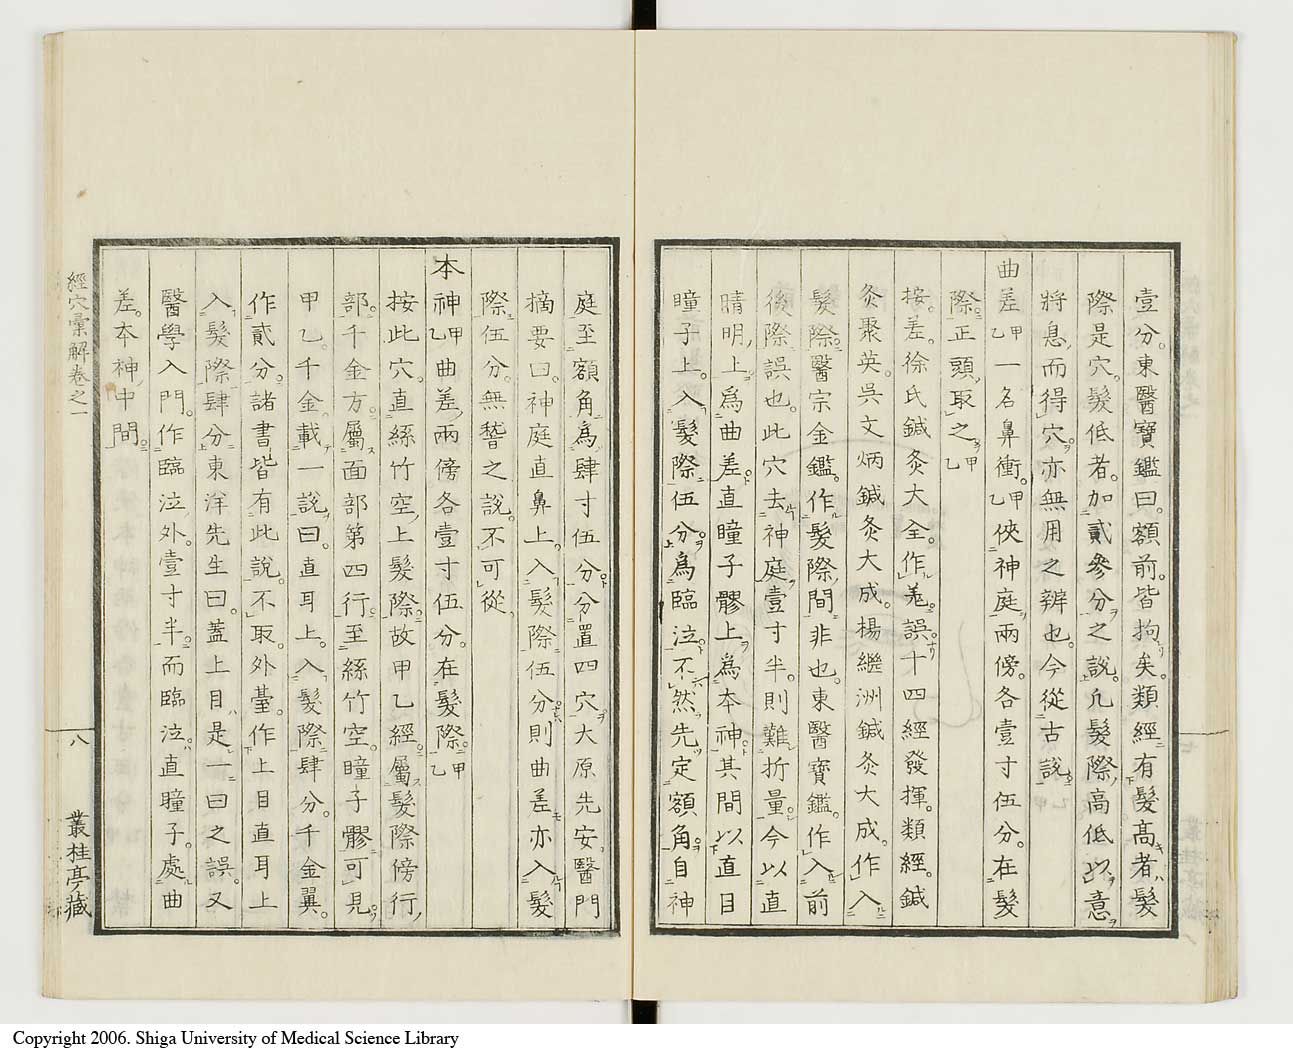 壹分。東醫寶鑑曰。額前。皆拘矣。類經有髮髙者。髮
際是穴。髮低者。加貳參分之說。凡髮際高低以意
將息。而得穴。亦無用之辨也。今從古說
曲差甲乙一名鼻衝。甲乙俠神庭兩傍。各壹寸伍分。在髮
際。正頭取之甲乙
按。差。徐氏鍼灸大全。作羗。誤。十四經發揮。類經。鍼
灸聚英。吳文炳鍼灸大成。楊繼洲鍼灸大成。作入
髮際。醫宗金鑑。作髮際間。非也。東醫寶鑑。作入前
後際。誤也。此穴去神庭壹寸半。則難折量。今以直
睛明上。爲曲差。直瞳子髎上。爲本神。其間以直目
瞳子上。入髮際伍分。爲臨泣。不然。先定額角。自神
庭至額角。爲肆寸伍分。分置四穴。大原先安。醫門
摘要曰。神庭直鼻上。入髮際伍分。則曲差亦入髮
際伍分。無誓之說。不可從
本神甲乙曲差兩傍各壹寸伍分。在髮際。甲乙
按此穴。直絲竹空上髮際。故甲乙經屬髮際傍行
部。千金方。屬面部第四行。至絲竹空。瞳子髎。可見。
甲乙。千金。載一說曰。直耳上。入髮際肆分。千金翼。
作貳分。諸書皆有此說。不取。外臺。作上目直耳上
入髮際肆分。東洋先生曰。蓋上目。是一曰之誤。又
醫學入門。作臨泣外。壹寸半。而臨泣。直瞳子。處曲
差。本神中間。
經穴彙解卷之一
八
叢桂亭藏
Copyright 2006. Shiga University of Medical Science Library